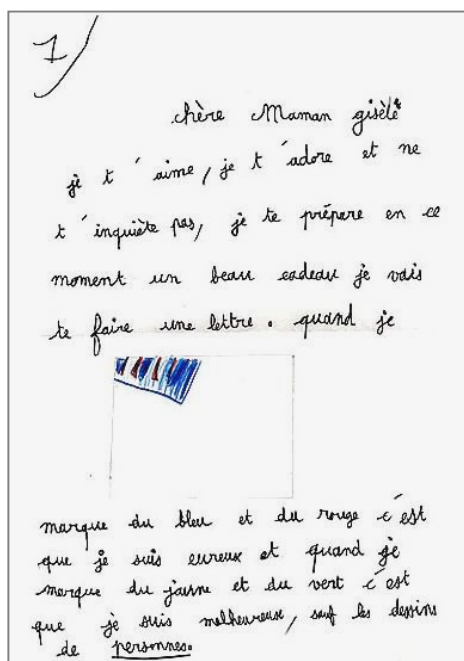 1/
chère Maman gisèle
je t'aime, je t'adore et ne
t'inquiète pas, je te prépare en ce
moment un beau cadeau je vais
te faire une lettre. quand je
marque du bleu et du rouge c'est
que je suis eureux et quand je
marque du jaune et du vert c'est
que je suis malheureux, sauf les dessins
de personnes.